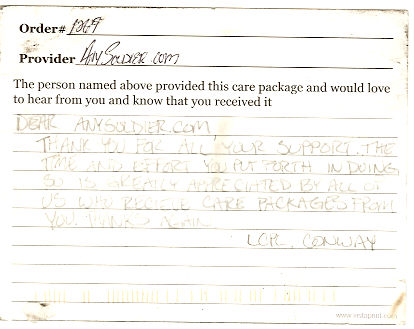 Order# 1269
Provider AnySoldier.com
The person named above provided this care package and would love
to hear from you and know that you received it
DEAR ANYSOLDIER.COM,
THANK YOU FOR ALL YOUR SUPPORT. THE
TIME AND EFFORT YOU PUT FORTH IN DOING
SO IS GREATLY APPRECIATED BY ALL OF
US WHO RECIEVE CARE PACKAGES FROM
YOU. THANKS AGAIN
LCPL. CONWAY
www.vistaprint.com